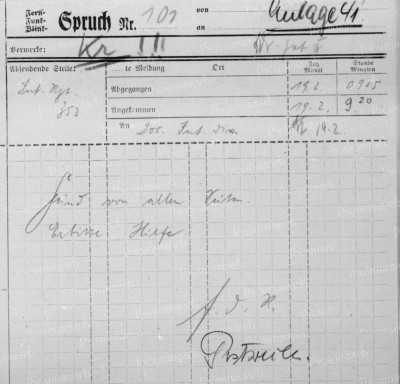 Fern-
Funk- Spruch Nr. 101 von Anlage 41
Blink- an
Vermerke: Kr !!!
Absendende Stelle: te Meldung Ort Tag Monat Stunde Minuten
Inf. Rgt. Abgegangen 19.2. 0905
353 Angekommen 19.2. 9.20
An Inf. Div. 19.2.
Feind von allen Seiten.
Erbitte Hilfe.
f. d. R.